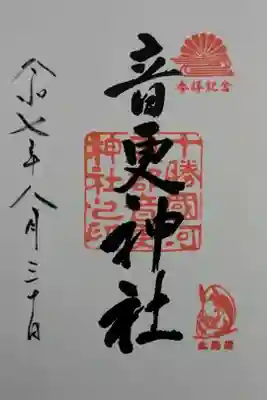 参拝記念
音更神社
十勝國河
神社之印
令和七年八月三十日